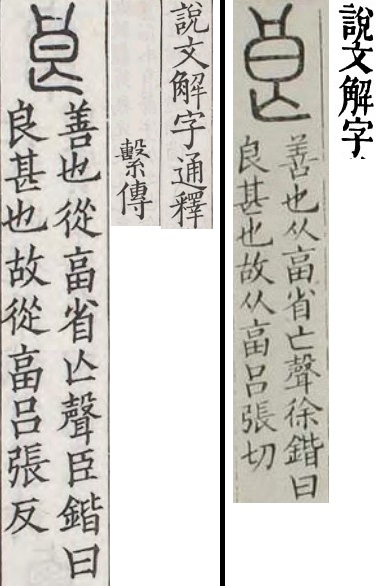 說文解字
良
善也从畗省亡聲徐鍇曰
良甚也故从畗呂張切
說文解字通釋
繫傳
良
善也從畗省亾聲臣鍇曰
良甚也故從畗呂張反